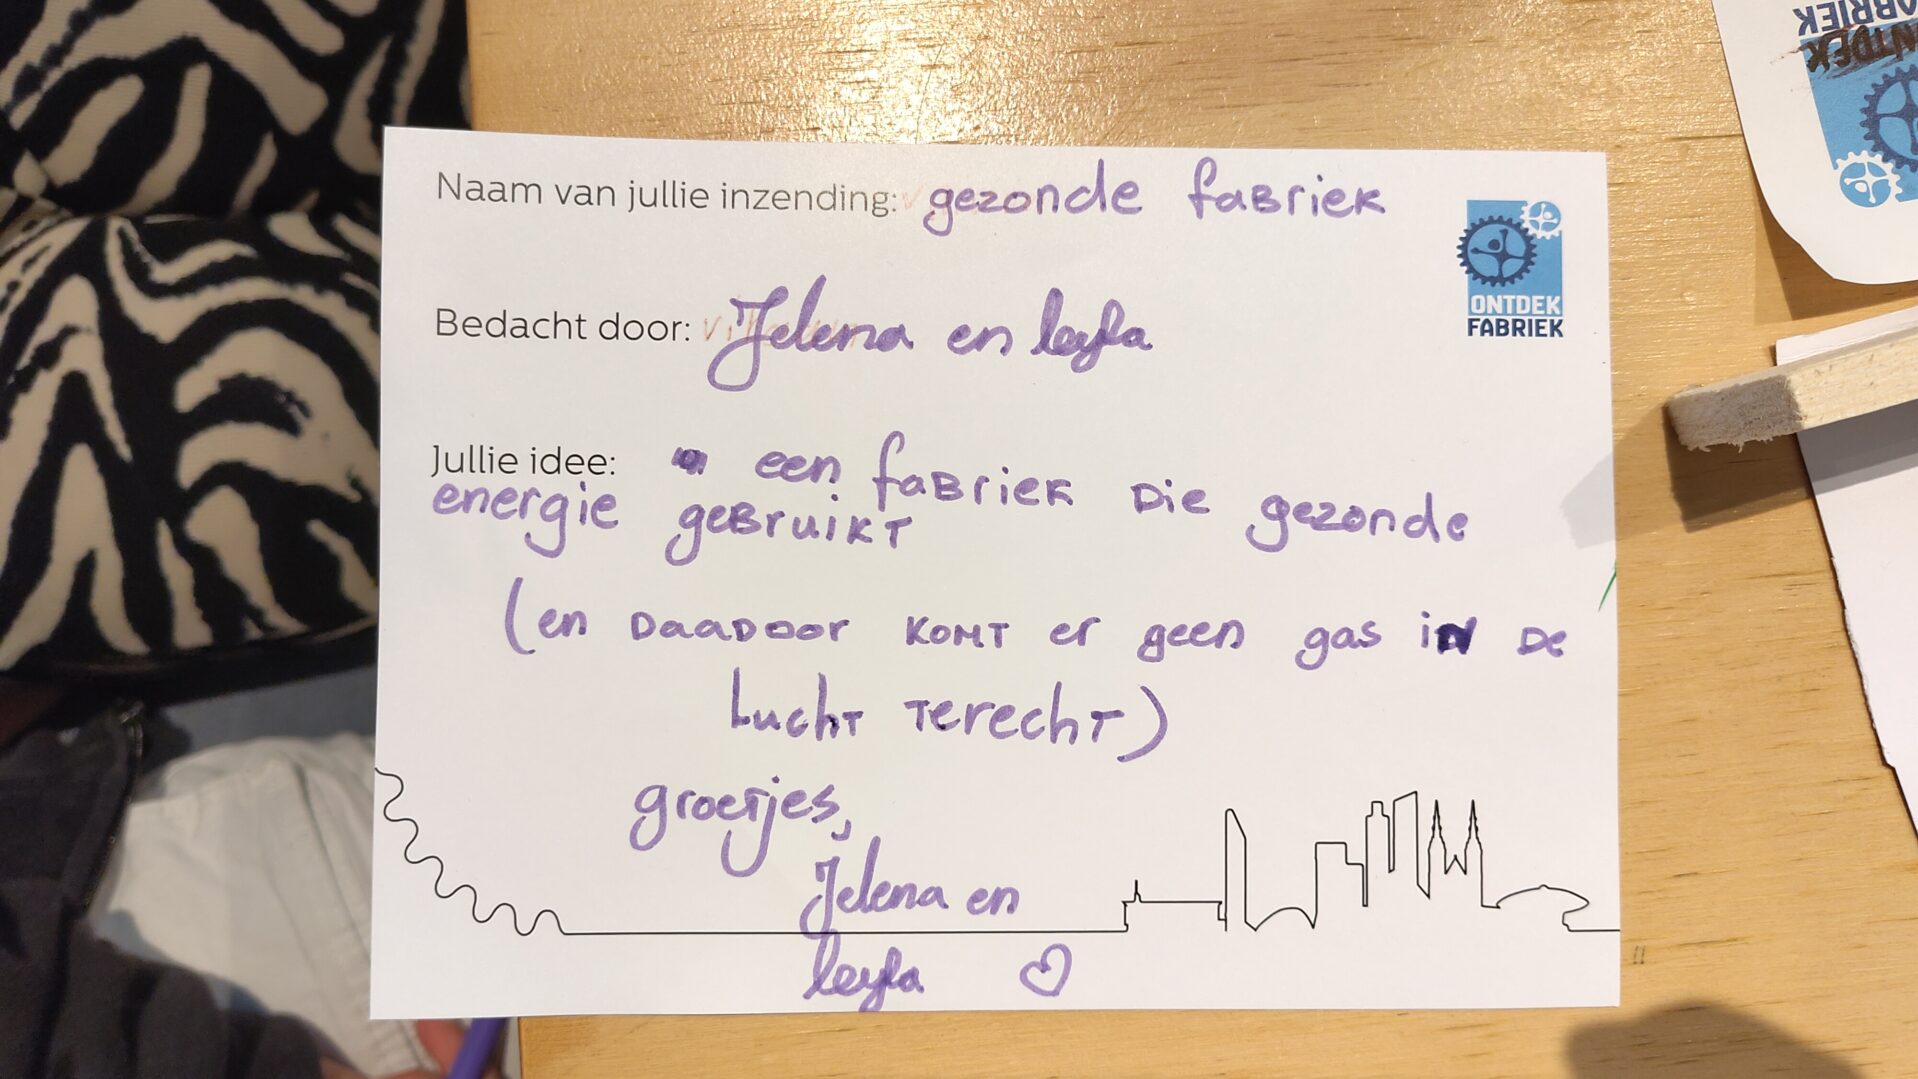 Naam van jullie inzending: gezonde fabriek
ONTDEK
FABRIEK
Bedacht door: Jelena en leyla
Jullie idee: een fabriek Die gezonde
energie gebruikt
(en Daadoor komt er geen gas in De
Lucht terecht)
groetjes,
Jelena en
leyla
ONTDEK
FABRIEK